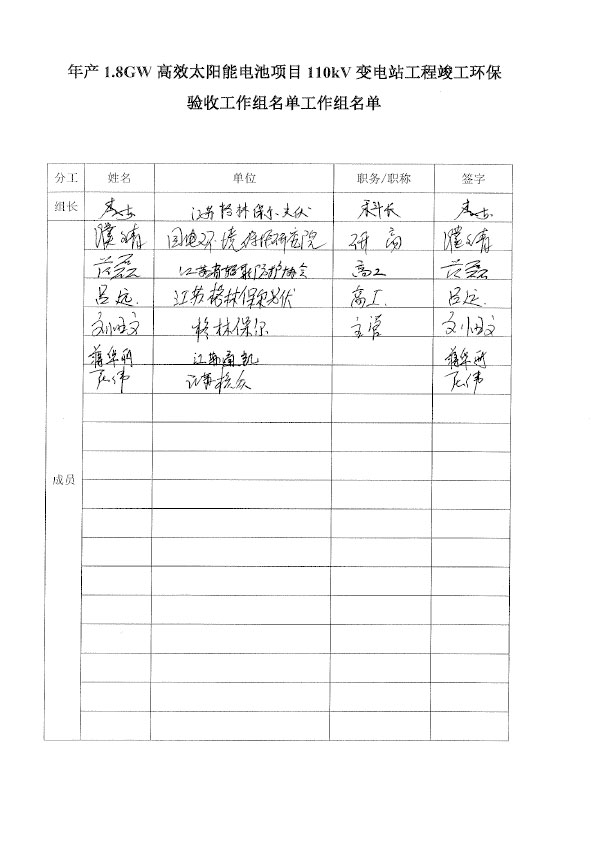 年产1.8GW高效太阳能电池项目110kV变电站工程竣工环保
验收工作组名单工作组名单
分工 姓名 单位 职务/职称 签字
组长 江苏格林保尔光伏 科长
国电环境保护研究院 研高
范磊 江苏省辐射防护协会 高工 范磊
吕远 江苏格林保尔光伏 高工 吕远
刘小文 格林保尔 主管 刘小文
蒋华 江苏通凯 蒋华
伟 江苏核众 伟
成员